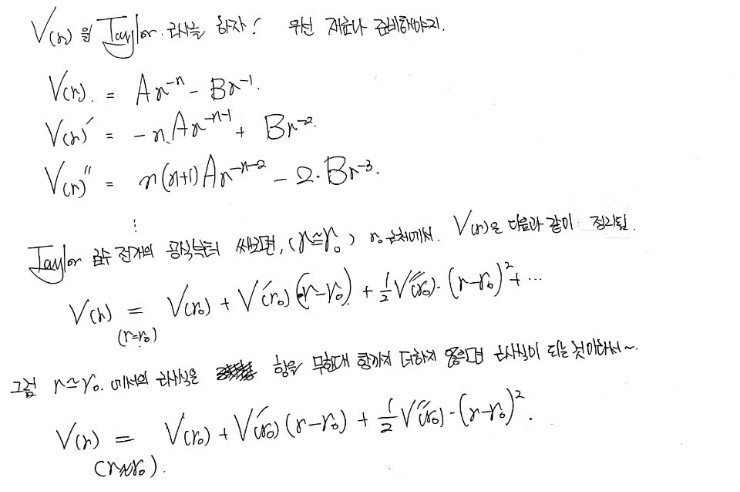 V(r)을 Taylor 근사를 하자! 우선 재료나 준비해야지.
V(r) = Ar⁻ⁿ - Br⁻¹.
V(r)′ = -nAr⁻ⁿ⁻¹ + Br⁻².
V(r)″ = n(n+1)Ar⁻ⁿ⁻² - 2·Br⁻³.
⋮
Taylor 급수 전개의 공식부터 써보면, (r≃r₀) r₀ 근처에서. V(r)은 다음과 같이 정리됨.
V(r) = V(r₀) + V′(r₀)(r-r₀) + ½V″(r₀)·(r-r₀)² + ⋯
(r=r₀)
그럼 r≃r₀. 에서의 근사식은 항을 무한대 항까지 더하지 않으면 근사식이 되는 것이라서~.
V(r) = V(r₀) + V′(r₀)(r-r₀) + ½V″(r₀)·(r-r₀)².
(r≈r₀).